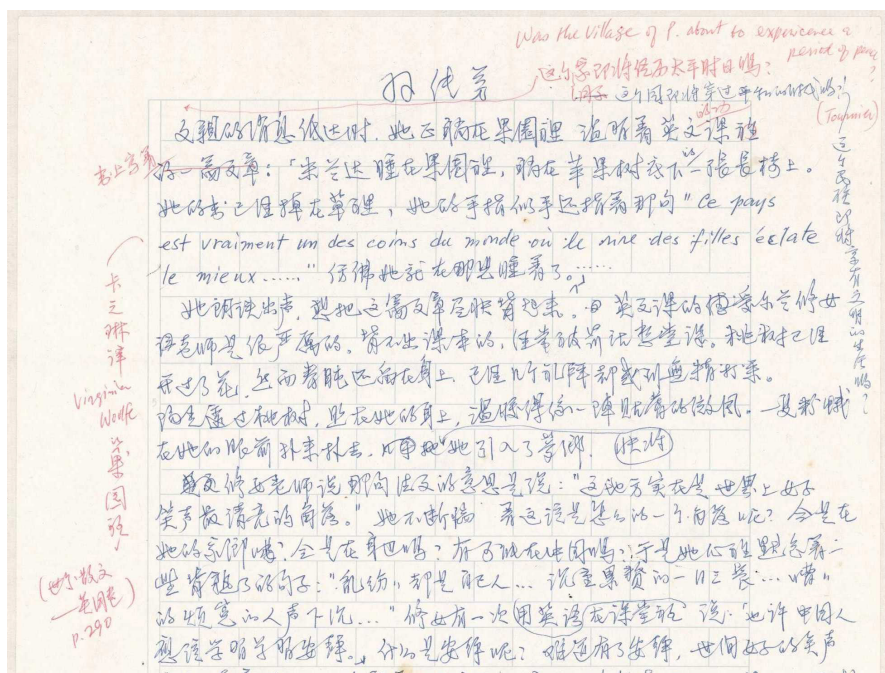 Was the village of P. about to experience a
period of peace?
这个家即将经历太平时日吗?
这个国即将穿过平和的时代吗?
(Tournier)
这个民族即将享有文明的生活吗?
招代弟
父親的消息低达时,她正躺在果園裡,温習着英文課裡
书上寫着
一篇文章:「米兰达睡在果園裡,躺在苹果树底下的一張長椅上。
她的书已經掉在草裡,她的手指似乎还指着那句"Ce pays
est vraiment un des coins du monde où le rire des filles éclate
le mieux......"彷彿她就在那兒睡着了。......
她朗读出声,想把这篇文章尽快背起来。英文課的傅愛尔兰修女
課老师是很严厉的。背不出課本的,經常被罚站整堂課。桃树已經
开过了花,然而春盹还留在身上,已經几个礼拜都感到無精打采。
陽光透过桃树,照在她的身上,温暖得像一陣貼着的微風。一隻粉蛾
在她的眼前扑来扑去,她引入了夢鄉。
修女老师说那句法文的意思是说:"这地方实在是世界上女子
笑声最清亮的角落。"她不断 着这該是怎么的一个角落呢?会是在
她的家鄉嗎?会是在 嗎?有可能在中国嗎?于是她心裡默念着一
些背熟了的句子:"乱纷纷都是的人...
的煩寃的人声下沉..."修女有一次用英語在課堂裡说:"也许中国人
應該学習学習安静。」什么是安静呢?难道有了安静,世间女子的笑声
卡之琳譯
Virginia
Woolf
菓園裡
(世界散文
—英国卷)
p.290